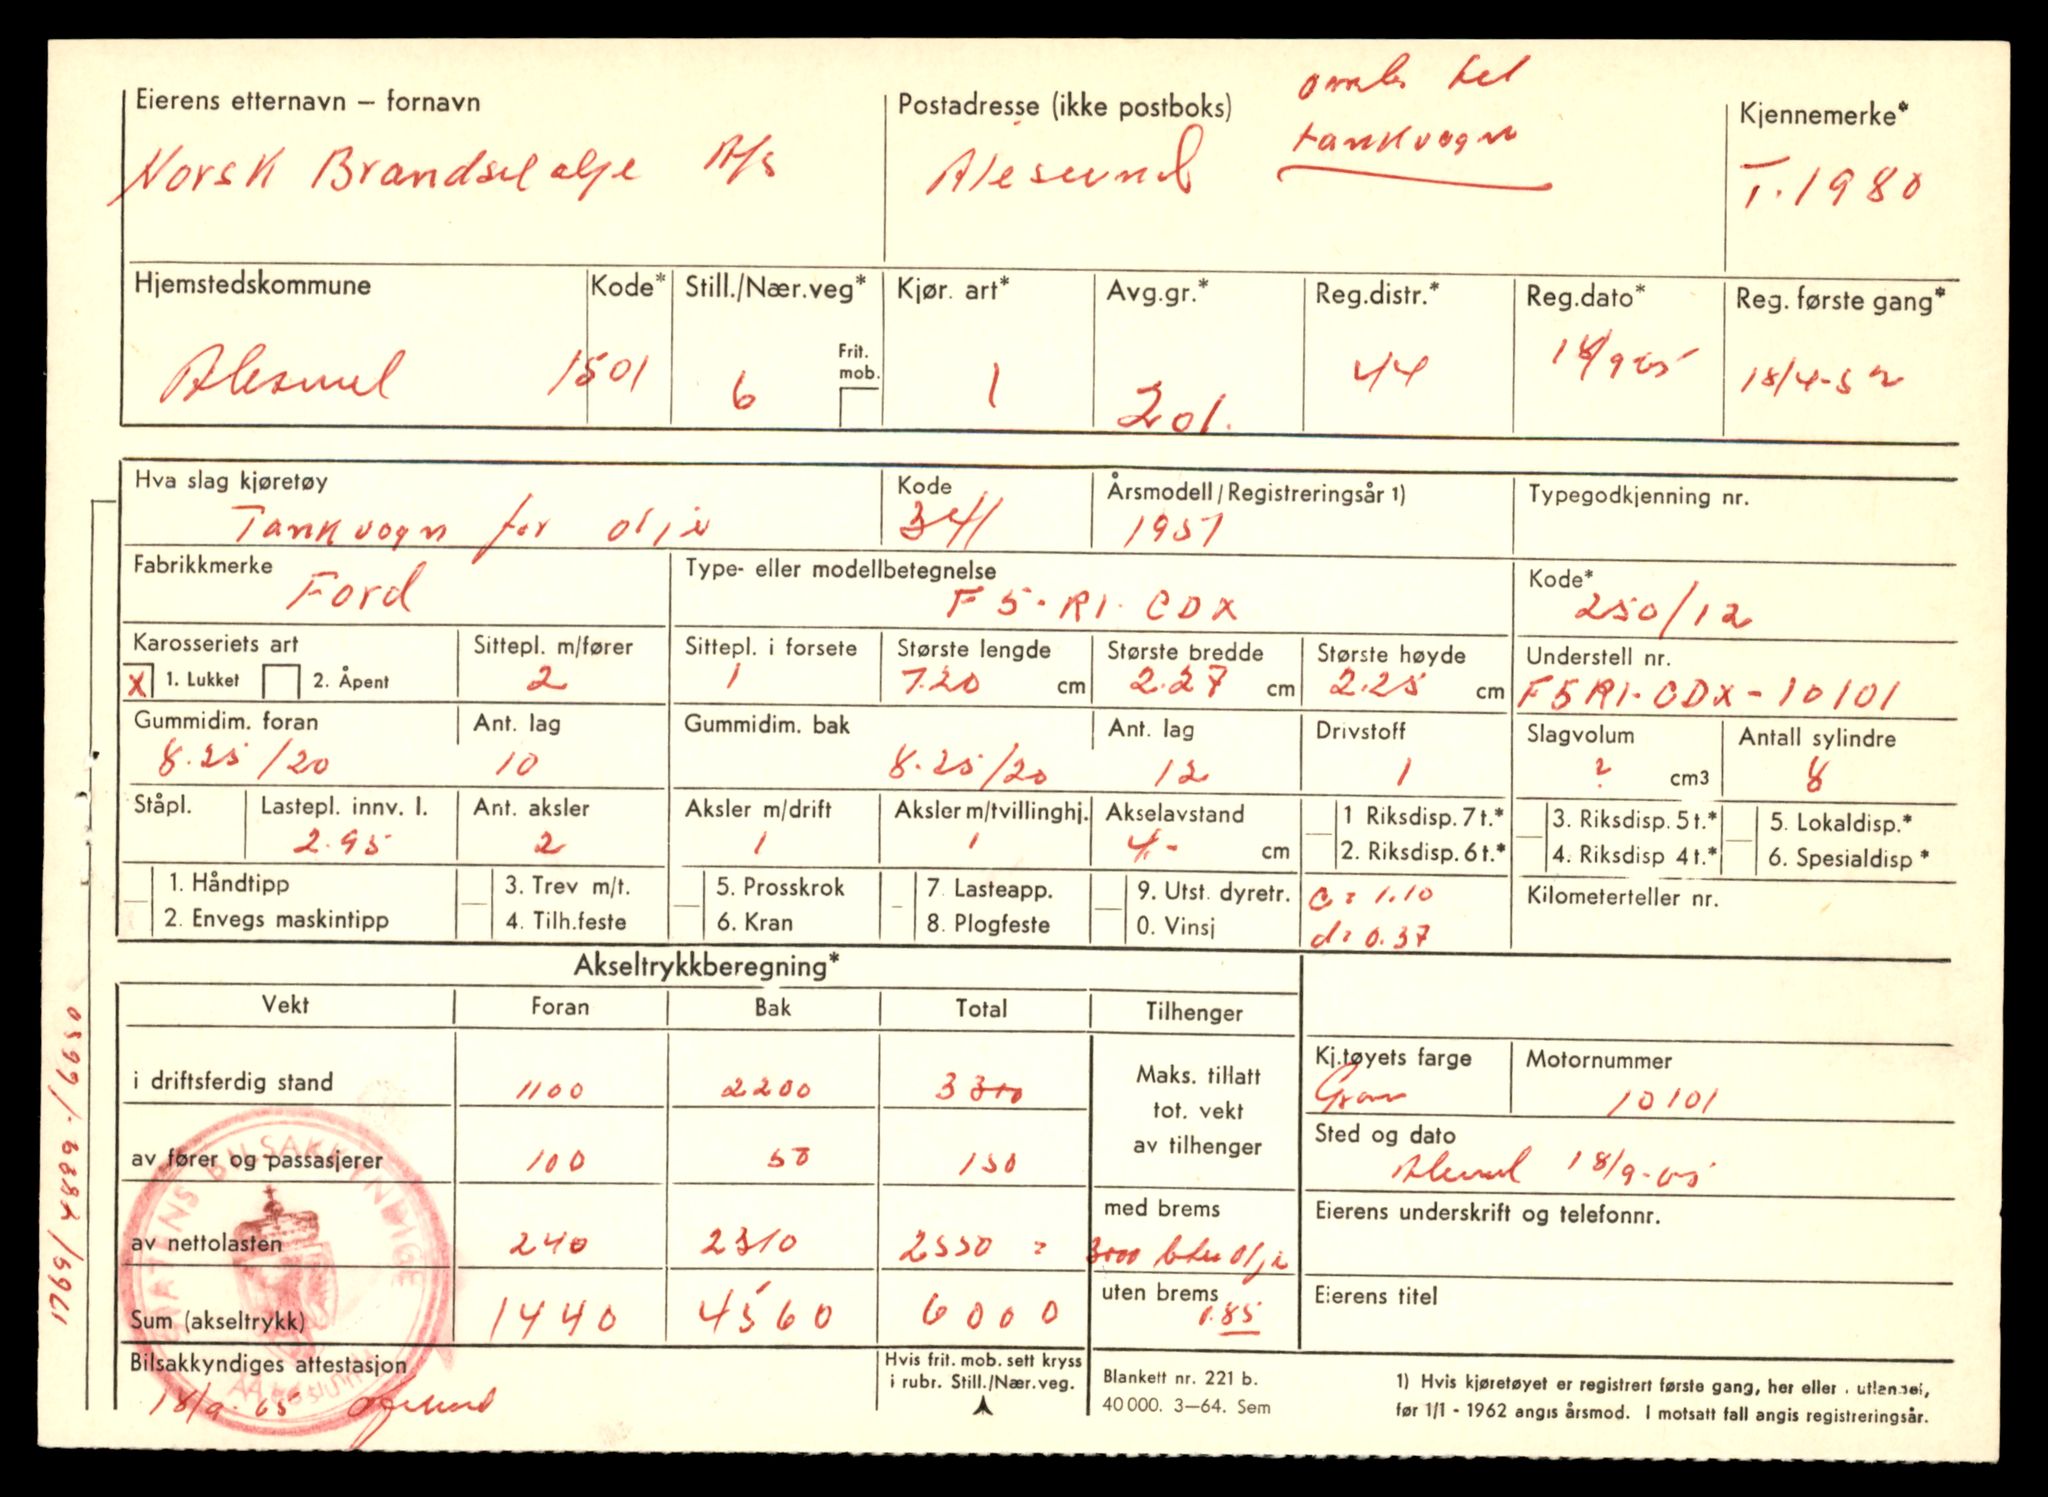 Eierens etternavn – fornavn
Norsk Brandselolje A/S
Postadresse (ikke postboks)
Ålesund
til
tankvogn
Kjennemerke*
T. 1980
Hjemstedskommune
Ålesund
Kode*
1501
Still./Nær.veg*
6
Frit.
mob.
Kjør. art*
1
Avg.gr.*
201.
Reg.distr.*
44
Reg.dato*
18/9-65
Reg. første gang*
18/4-52
Hva slag kjøretøy
Tankvogn for olje
Kode
341
Årsmodell/Registreringsår 1)
1951
Typegodkjenning nr.
Fabrikkmerke
Ford
Type- eller modellbetegnelse
F5-R1-CDX
Kode*
250/12
Karosseriets art
X 1. Lukket 2. Åpent
Sittepl. m/fører
2
Sittepl. i forsete
1
Største lengde
7.20 cm
Største bredde
2.27 cm
Største høyde
2.25 cm
Understell nr.
F5R1-CDX-10101
Gummidim. foran
8.25/20
Ant. lag
10
Gummidim. bak
8.25/20
Ant. lag
12
Drivstoff
1
Slagvolum
? cm3
Antall sylindre
8
Ståpl.
Lastepl. innv. l.
2.95
Ant. aksler
2
Aksler m/drift
1
Aksler m/tvillinghj.
1
Akselavstand
4.- cm
1 Riksdisp. 7 t.*
2. Riksdisp. 6 t.*
3. Riksdisp. 5 t.*
4. Riksdisp 4 t.*
5. Lokaldisp.*
6. Spesialdisp *
1. Håndtipp
2. Envegs maskintipp
3. Trev m/t.
4. Tilh.feste
5. Prosskrok
6. Kran
7. Lasteapp.
8. Plogfeste
9. Utst. dyretr.
0. Vinsj
c = 1.10
d = 0.37
Kilometerteller nr.
Akseltrykkberegning*
Vekt Foran Bak Total Tilhenger
i driftsferdig stand 1100 2200 3300
av fører og passasjerer 100 50 150
av nettolasten 240 2310 2550 = 3000 liter olje
Sum (akseltrykk) 1440 4560 6000
Maks. tillatt
tot. vekt
av tilhenger
med brems
uten brems
0.85
Kj.tøyets farge
Grøn
Motornummer
10101
Sted og dato
Ålesund 18/9-65
Eierens underskrift og telefonnr.
Eierens titel
Bilsakkyndiges attestasjon
18/9-65
STATENS BILSAKKYNDIGE
Hvis frit. mob. sett kryss
i rubr. Still./Nær.veg.
Blankett nr. 221 b.
40 000. 3–64. Sem
1) Hvis kjøretøyet er registrert første gang, her eller i utlandet,
før 1/1 - 1962 angis årsmod. I motsatt fall angis registreringsår.